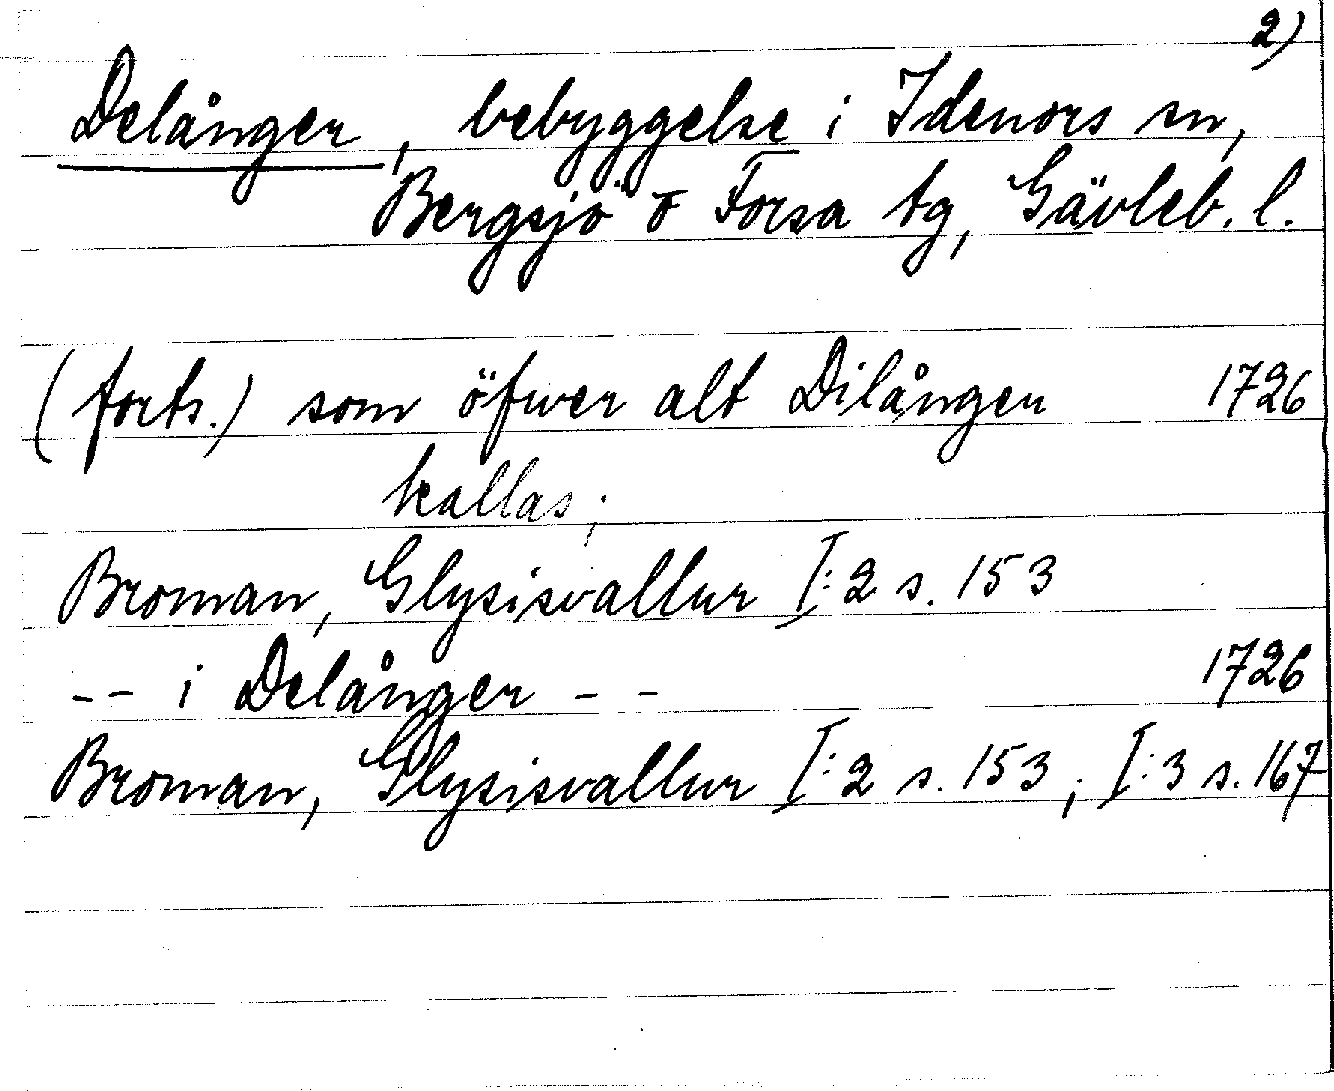 2)
Delånger, bebyggelse i Idenors sn,
Bergsjö o Forsa tg, Gävleb. l.
(forts.) som öfwer alt Dilånger 1726
kallas;
Broman, Glysisvallur I:2 s. 153
-- i Delånger -- 1726
Broman, Glysisvallur I:2 s. 153; I:3 s. 167